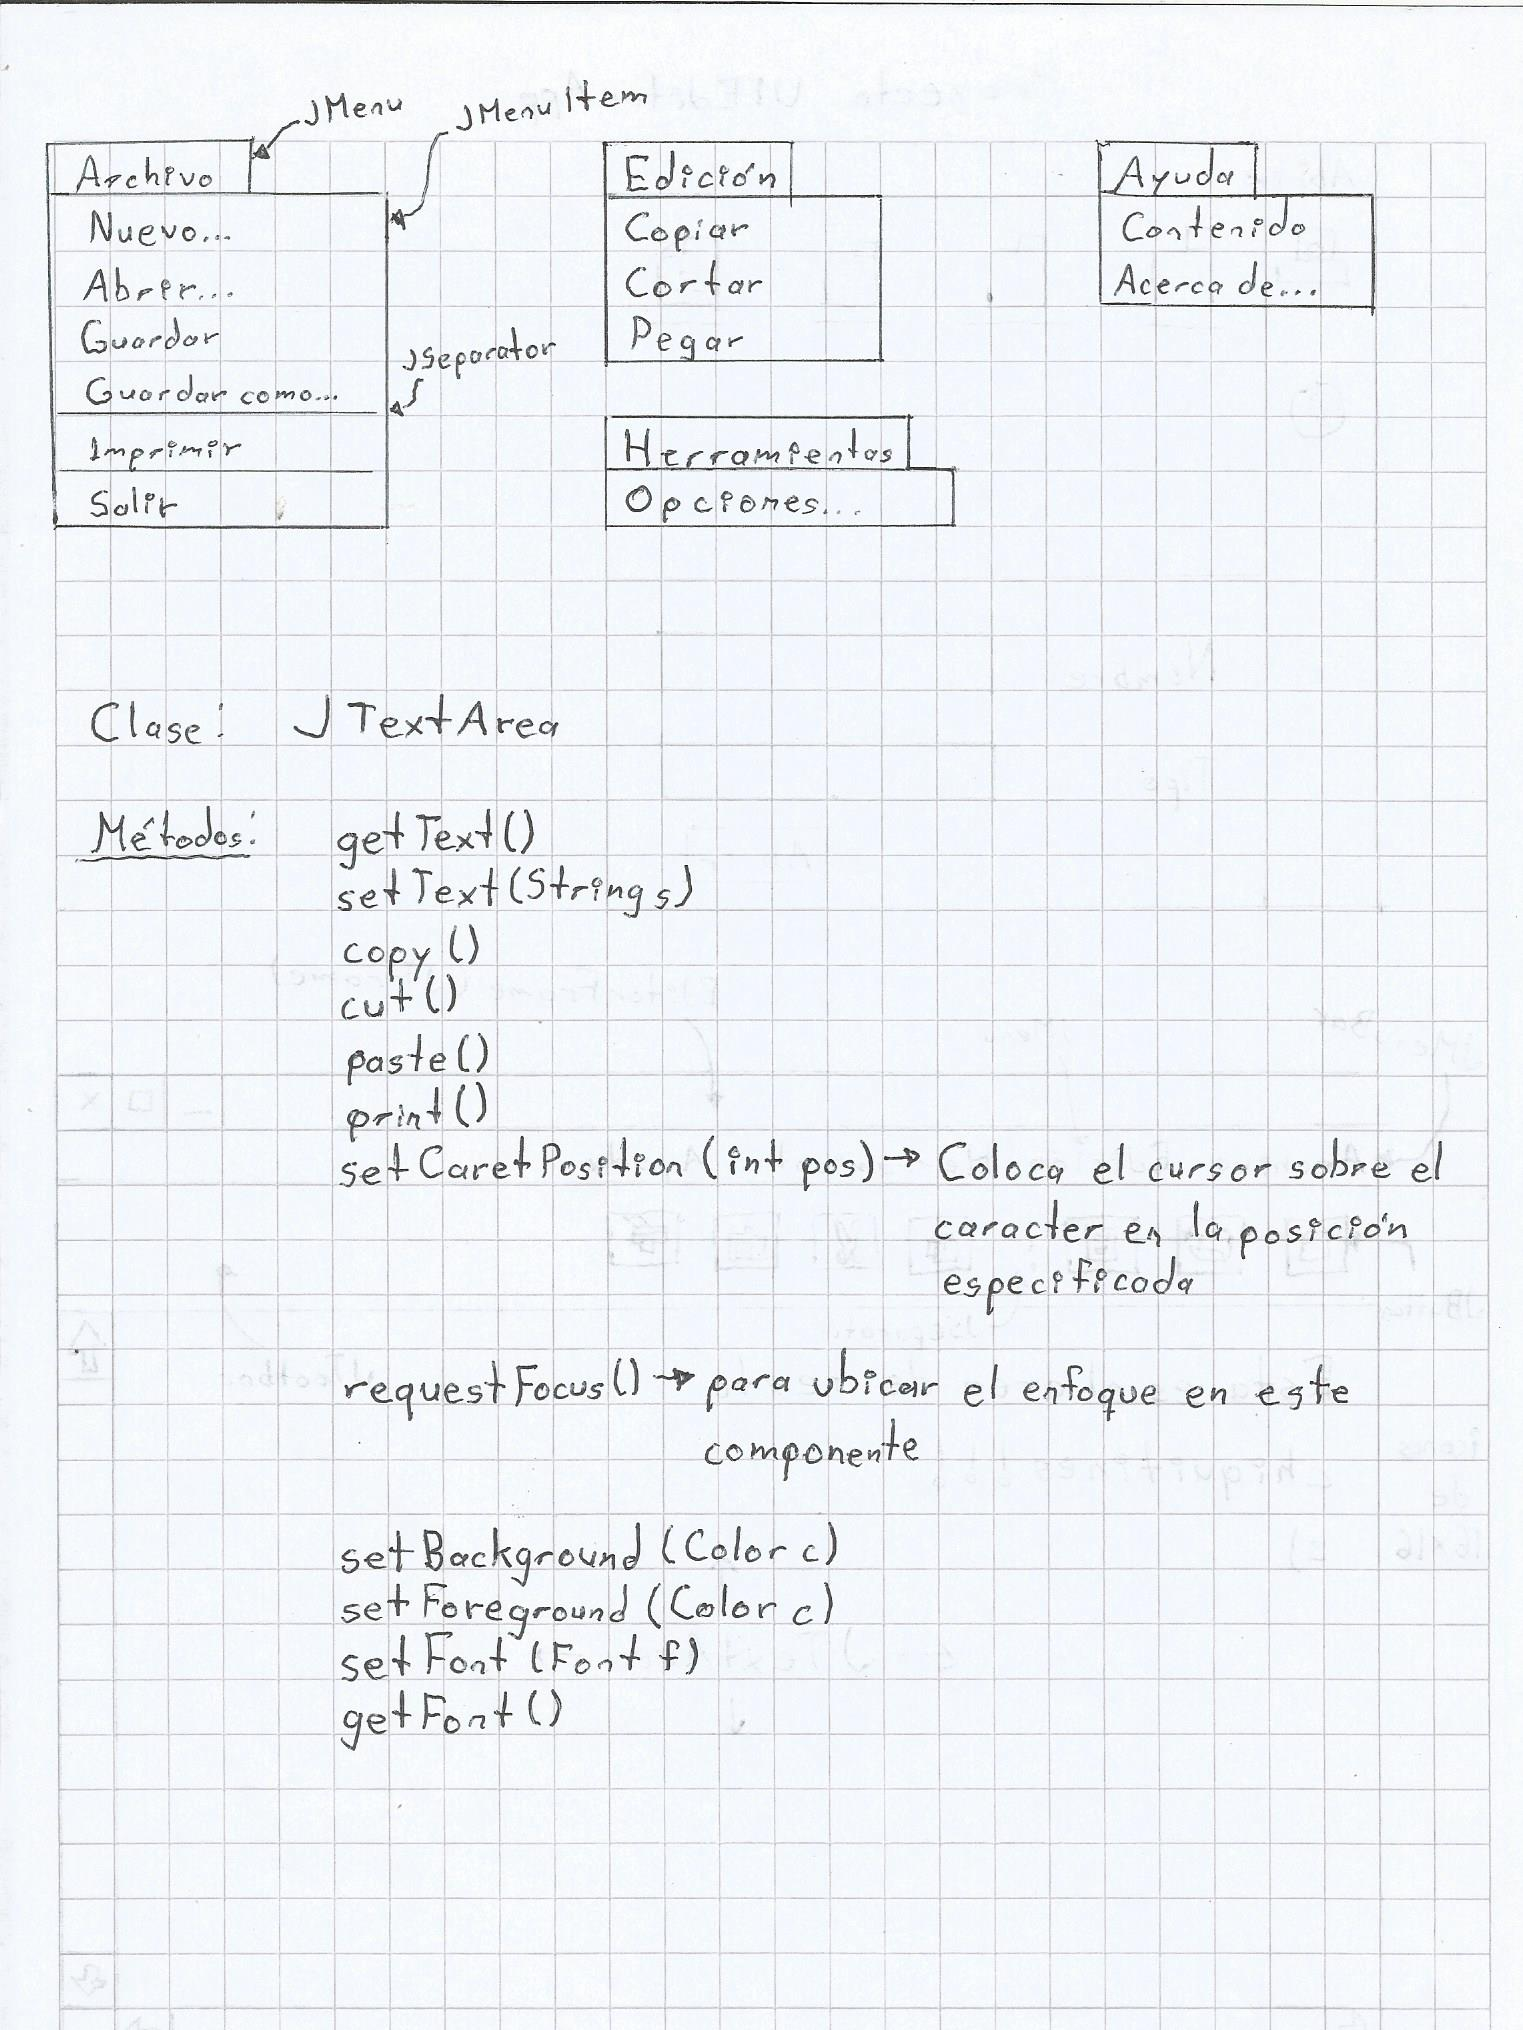 JMenu
JMenuItem
Archivo
Nuevo...
Abrir...
Guardar
Guardar como...
JSeparator
Imprimir
Salir
Edición
Copiar
Cortar
Pegar
Herramientas
Opciones...
Ayuda
Contenido
Acerca de...
Clase: JTextArea
Métodos: getText()
setText(String s)
copy()
cut()
paste()
print()
setCaretPosition(int pos) → Coloca el cursor sobre el
caracter en la posición
especificada
requestFocus() → para ubicar el enfoque en este
componente
setBackground (Color c)
setForeground (Color c)
setFont (Font f)
getFont()